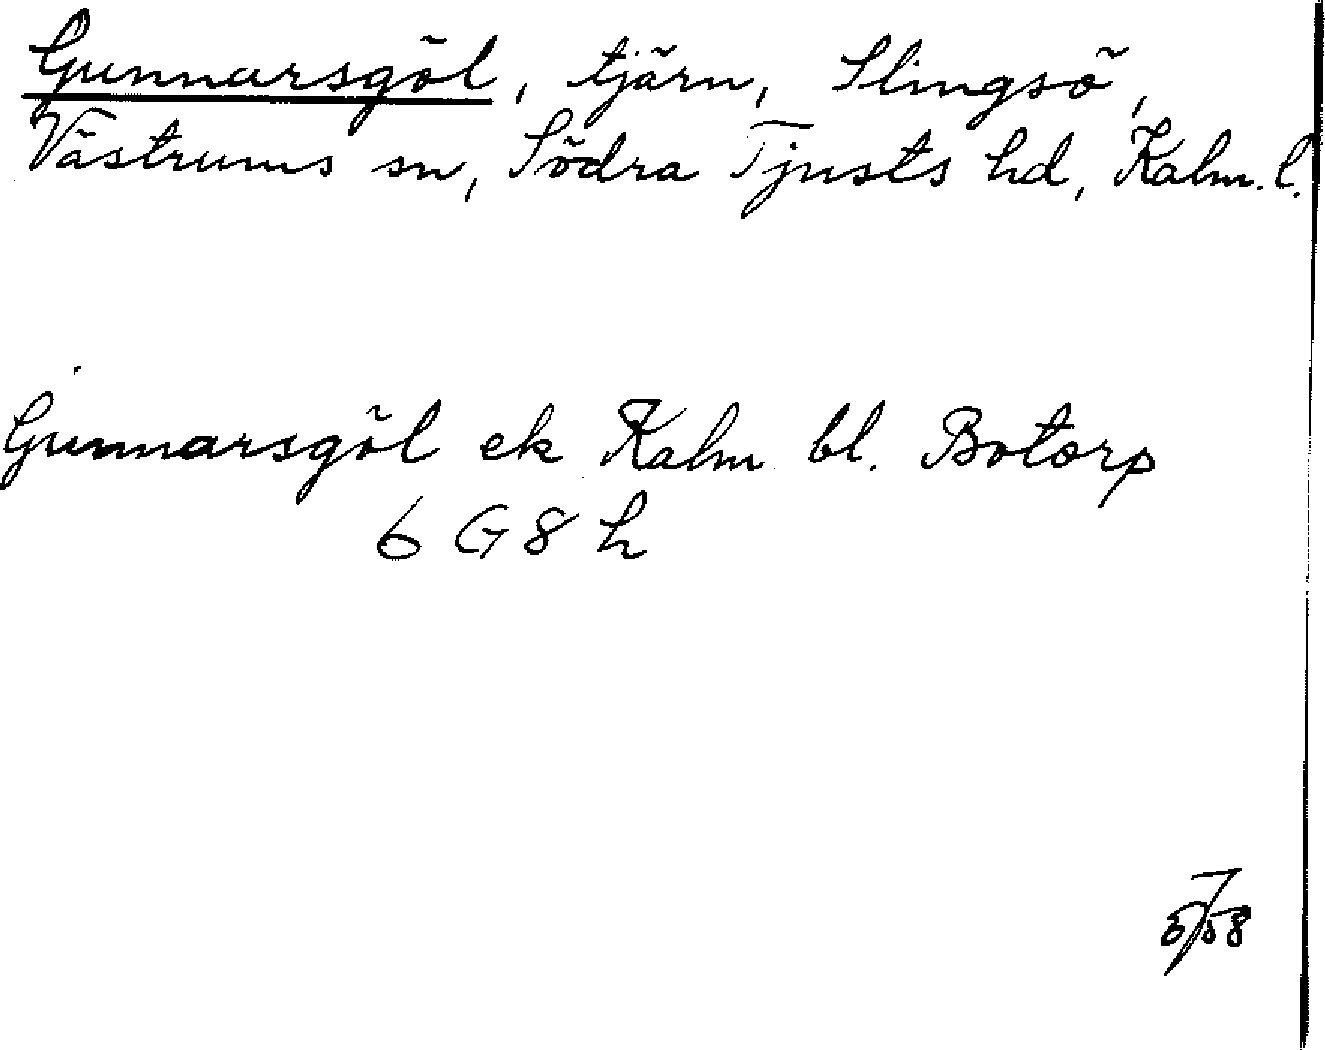 Gunnarsgöl, tjärn, Slingsö,
Västrums sn, Södra Tjusts hd, Kalm. l.
Gunnarsgöl ek Kalm bl. Botorp
6 G 8 h